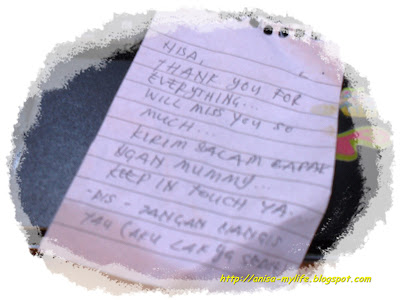 HISA,
THANK YOU FOR
EVERYTHING...
WILL MISS YOU SO
MUCH...
KIRIM SALAM BAPAK
NGAN MUMMY...
KEEP IN TOUCH YA.
JANGAN NANGIS
TAU (AKU LAK YG
http://anisa-mylife.blogspot.com